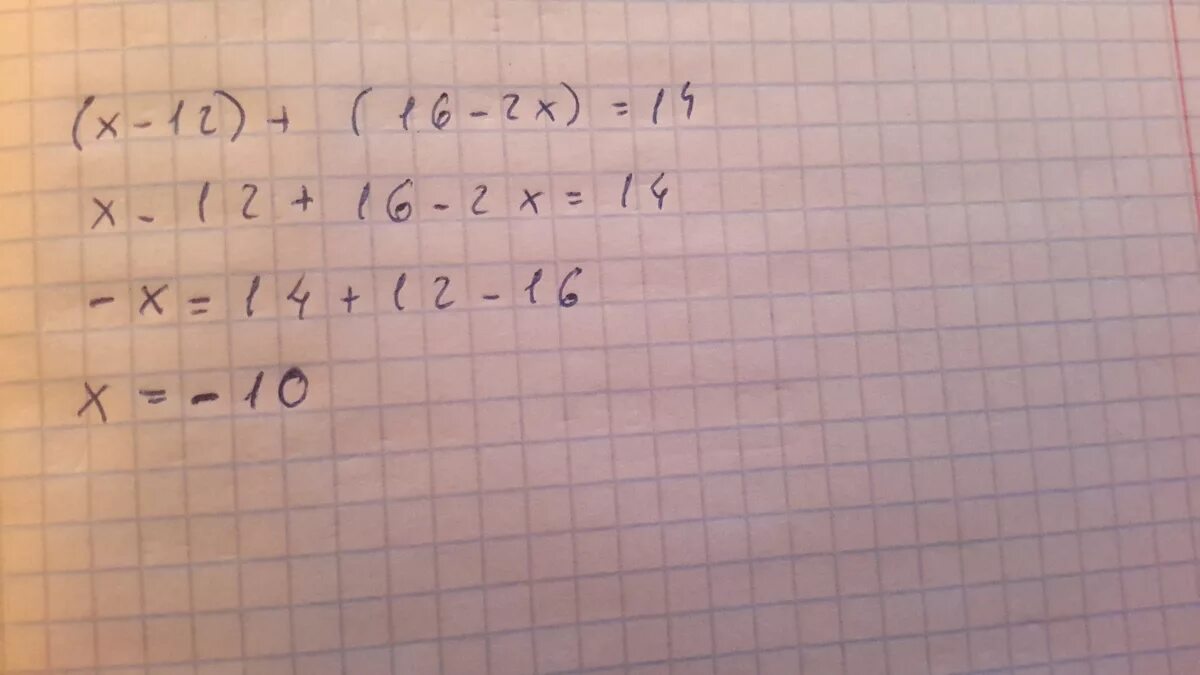 (x-12)+ (16-2x) = 14
x-12+16-2x=14
-x=14+12-16
x=-10